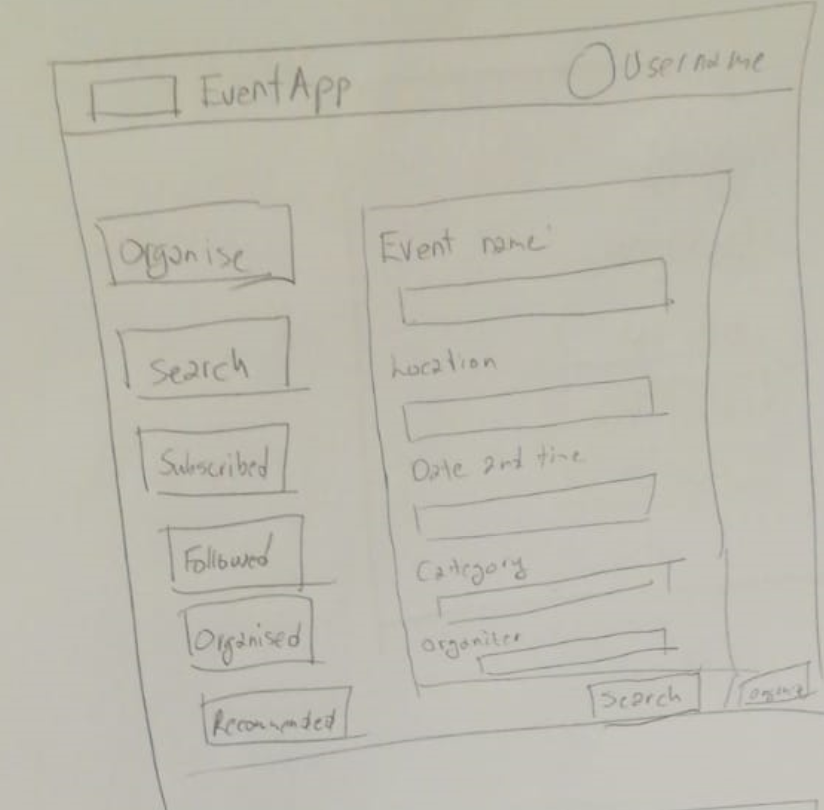 EventApp
Username
Organise
Search
Subscribed
Followed
Organised
Recommended
Event name
Location
Date and time
Category
Organiser
Search